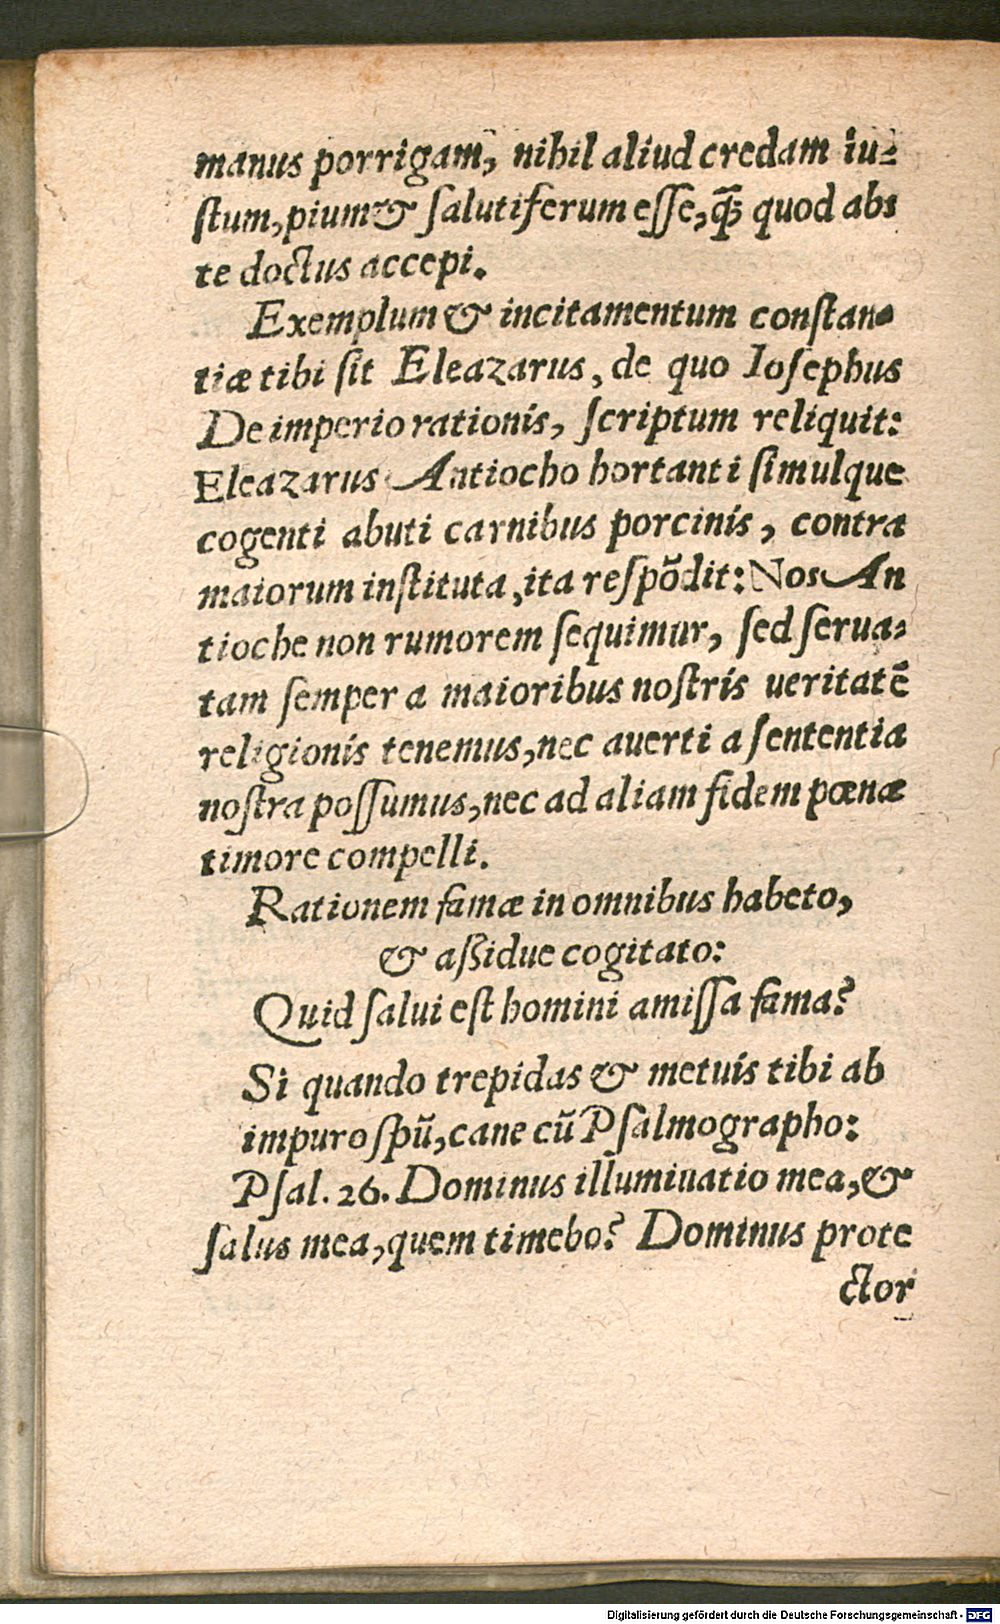 manus porrigam, nihil aliud credam iu-
ſtum, pium & ſalutiferum eſſe, q̃ꝫ quod abs
te doctus accepi.
Exemplum & incitamentum conſtan-
tiæ tibi ſit Eleazarus, de quo Ioſephus
De imperio rationis, ſcriptum reliquit:
Eleazarus Antiocho hortanti ſimulque
cogenti abuti carnibus porcinis, contra
maiorum inſtituta, ita reſpõdit: Nos An
tioche non rumorem ſequimur, ſed ſerua-
tam ſemper a maioribus noſtris ueritatẽ
religionis tenemus, nec auerti a ſententia
noſtra poſſumus, nec ad aliam fidem pœnæ
timore compelli.
Rationem famæ in omnibus habeto,
& aſſidue cogitato:
Quid ſalui eſt homini amiſſa fama?
Si quando trepidas & metuis tibi ab
impuro ſpũ, cane cũ Pſalmographo:
Pſal. 26. Dominus illuminatio mea, &
ſalus mea, quem timebo? Dominus prote
ctor
Digitalisierung gefördert durch die Deutsche Forschungsgemeinschaft - DFG